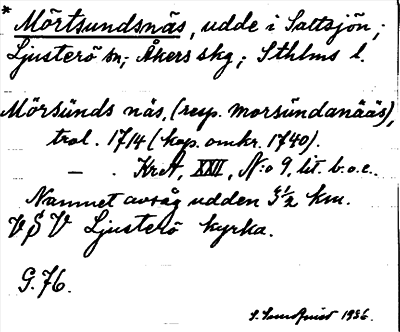 * Mörtsundsnäs, udde i Saltsjön;
Ljusterö sn; Åkers skg; Sthlms l.
Mörsünds näs, (resp. morsündanääs),
trol. 1714 (kop. omkr. 1740).
— . KrA, XXII, N:o 9, lit. b. o. c.
Namnet avsåg udden 3½ km.
VSV Ljusterö kyrka.
G. 76.
1936.